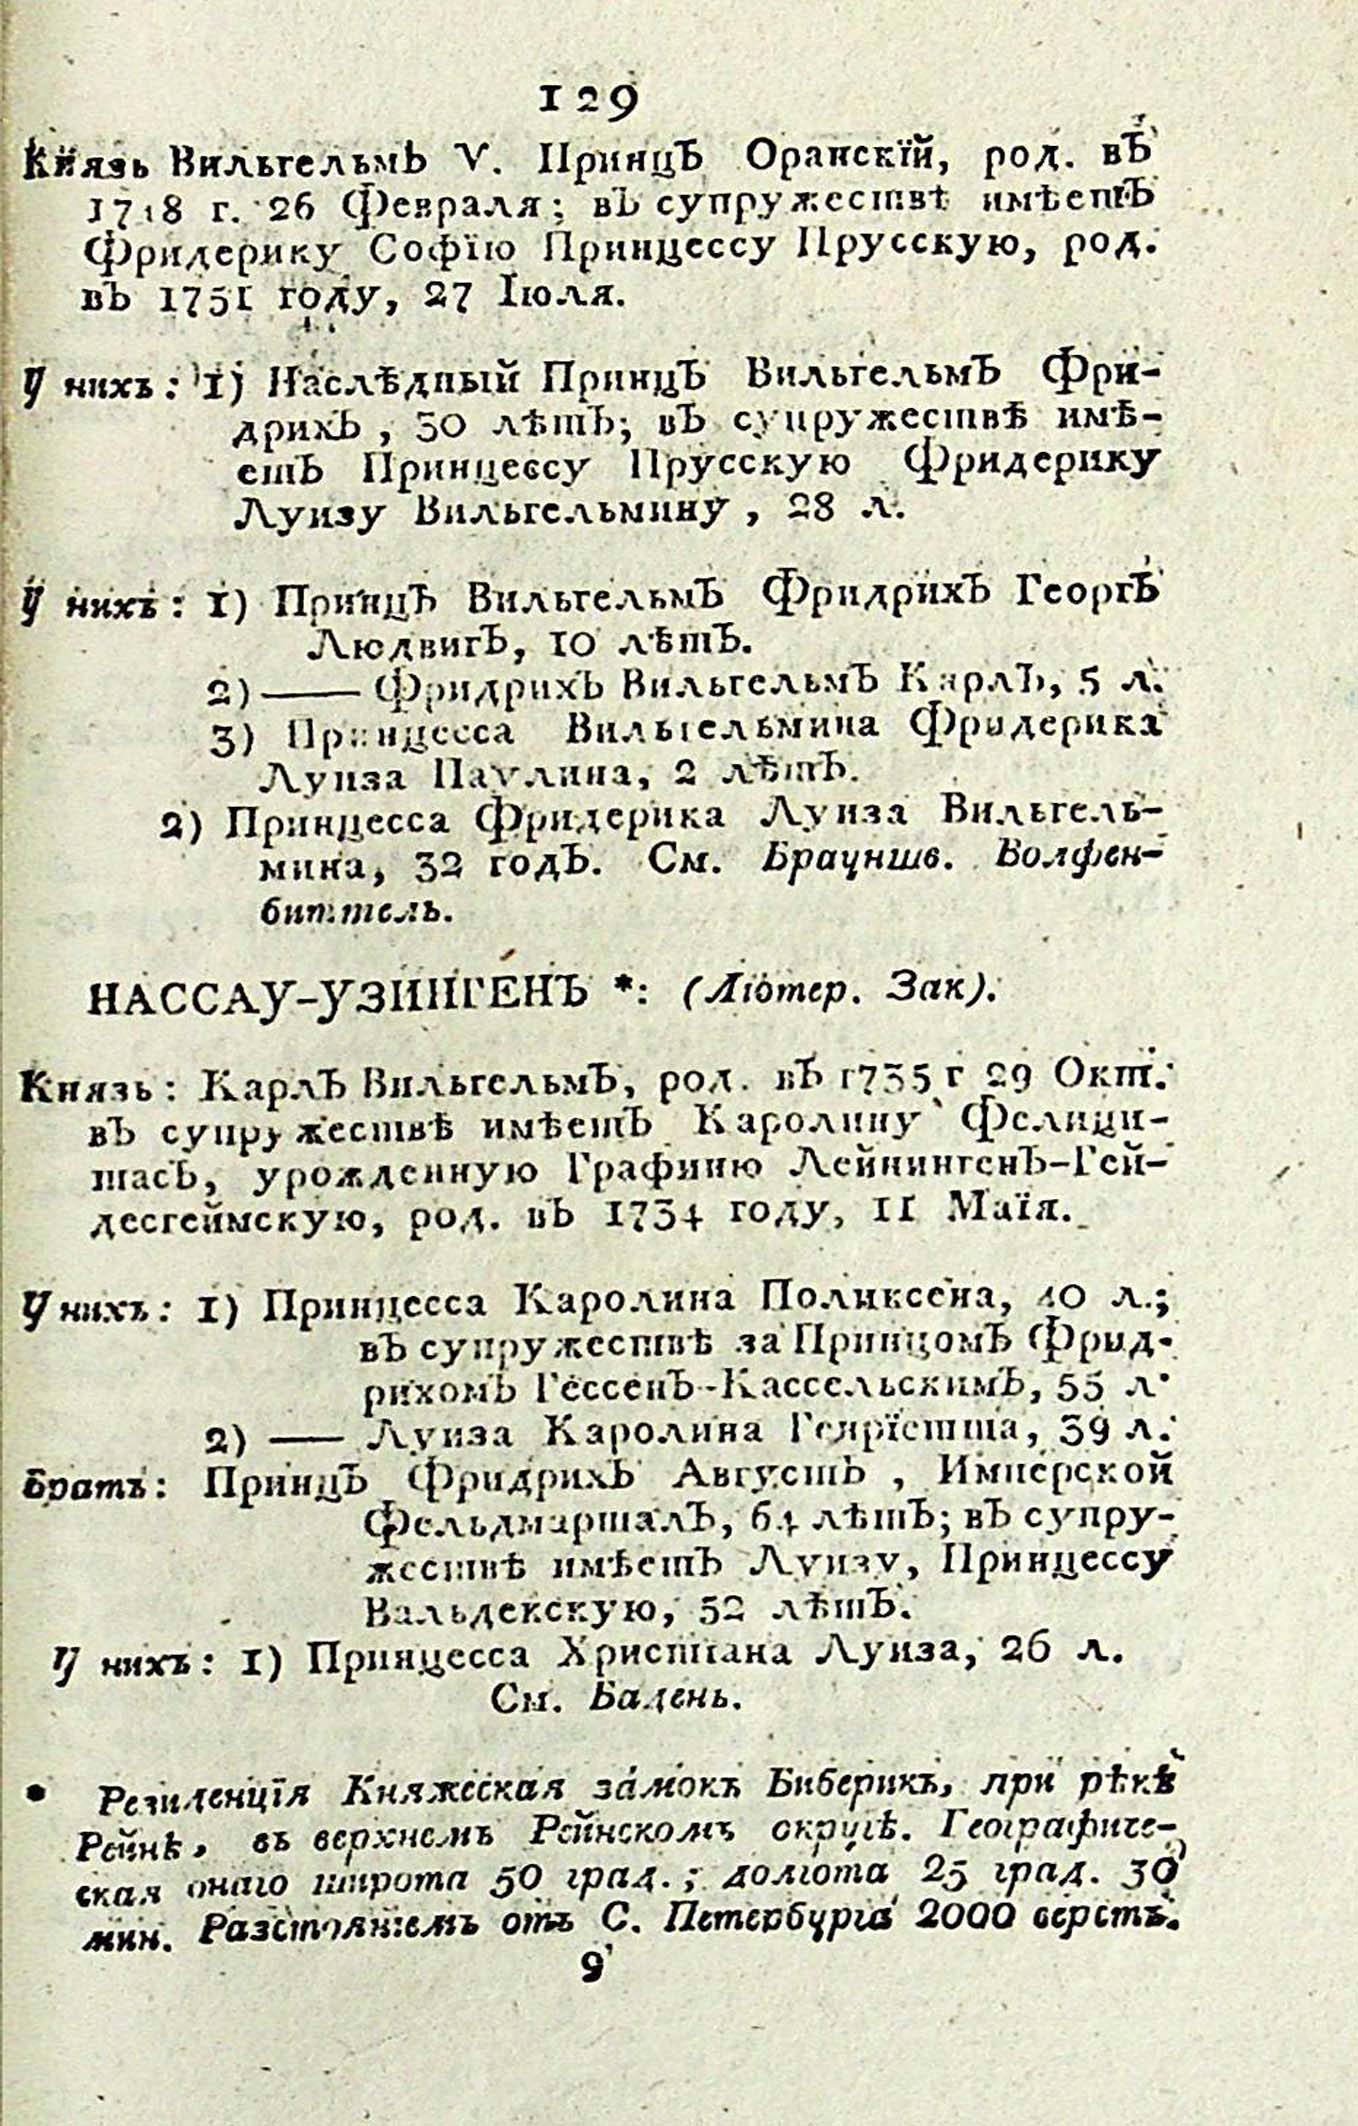 129
Князь Вильгельмъ V. Принцъ Оранскїй, род. въ
1748 г. 26 Февраля; въ супружествѣ имѣетъ
Фридерику Софїю Принцессу Прусскую, род.
въ 1751 году, 27 Іюля.
У нихъ: 1) Наслѣдный Принцъ Вильгельмъ Фри-
дрихъ, 30 лѣтъ; въ супружествѣ имѣ-
етъ Принцессу Прусскую Фридерику
Луизу Вильгельмину, 28 л.
У нихъ: 1) Принцъ Вильгельмъ Фридрихъ Георгъ
Людвигъ, 10 лѣтъ.
2) —— Фридрихъ Вильгельмъ Карлъ, 5 л.
3) Принцесса Вильгельмина Фридерика
Луиза Паулина, 2 лѣтъ.
2) Принцесса Фридерика Луиза Вильгель-
мина, 32 годъ. См. Брауншв. Волфен-
биттель.
НАССАУ-УЗИНГЕНЪ *: (Лютер. Зак).
Князь: Карлъ Вильгельмъ, род. въ 1735 г 29 Окт.
въ супружествѣ имѣетъ Каролину Фелици-
тасъ, урожденную Графиню Лейнингенъ-Гей-
десгеймскую, род. въ 1734 году, 11 Маїя.
У нихъ: 1) Принцесса Каролина Поликсена, 40 л.;
въ супружествѣ за Принцомъ Фрид-
рихомъ Гессенъ-Кассельскимъ, 55 л.
2) —— Луиза Каролина Генрїетта, 39 л.
Братъ: Принцъ Фридрихъ Августъ, Имперской
Фельдмаршалъ, 64 лѣтъ; въ супру-
жествѣ имѣетъ Луизу, Принцессу
Вальдекскую, 52 лѣтъ.
У нихъ: 1) Принцесса Христиана Луиза, 26 л.
См. Бадень.
* Резиденцїя Княжеская замокъ Биберихъ, при рѣкѣ
Рейнѣ, въ верхнемъ Рейнскомъ округѣ. Географиче-
ская онаго широта 50 град.; долгота 25 град. 30
мин. Разстоянїемъ отъ С. Петербурга 2000 верстъ.
9